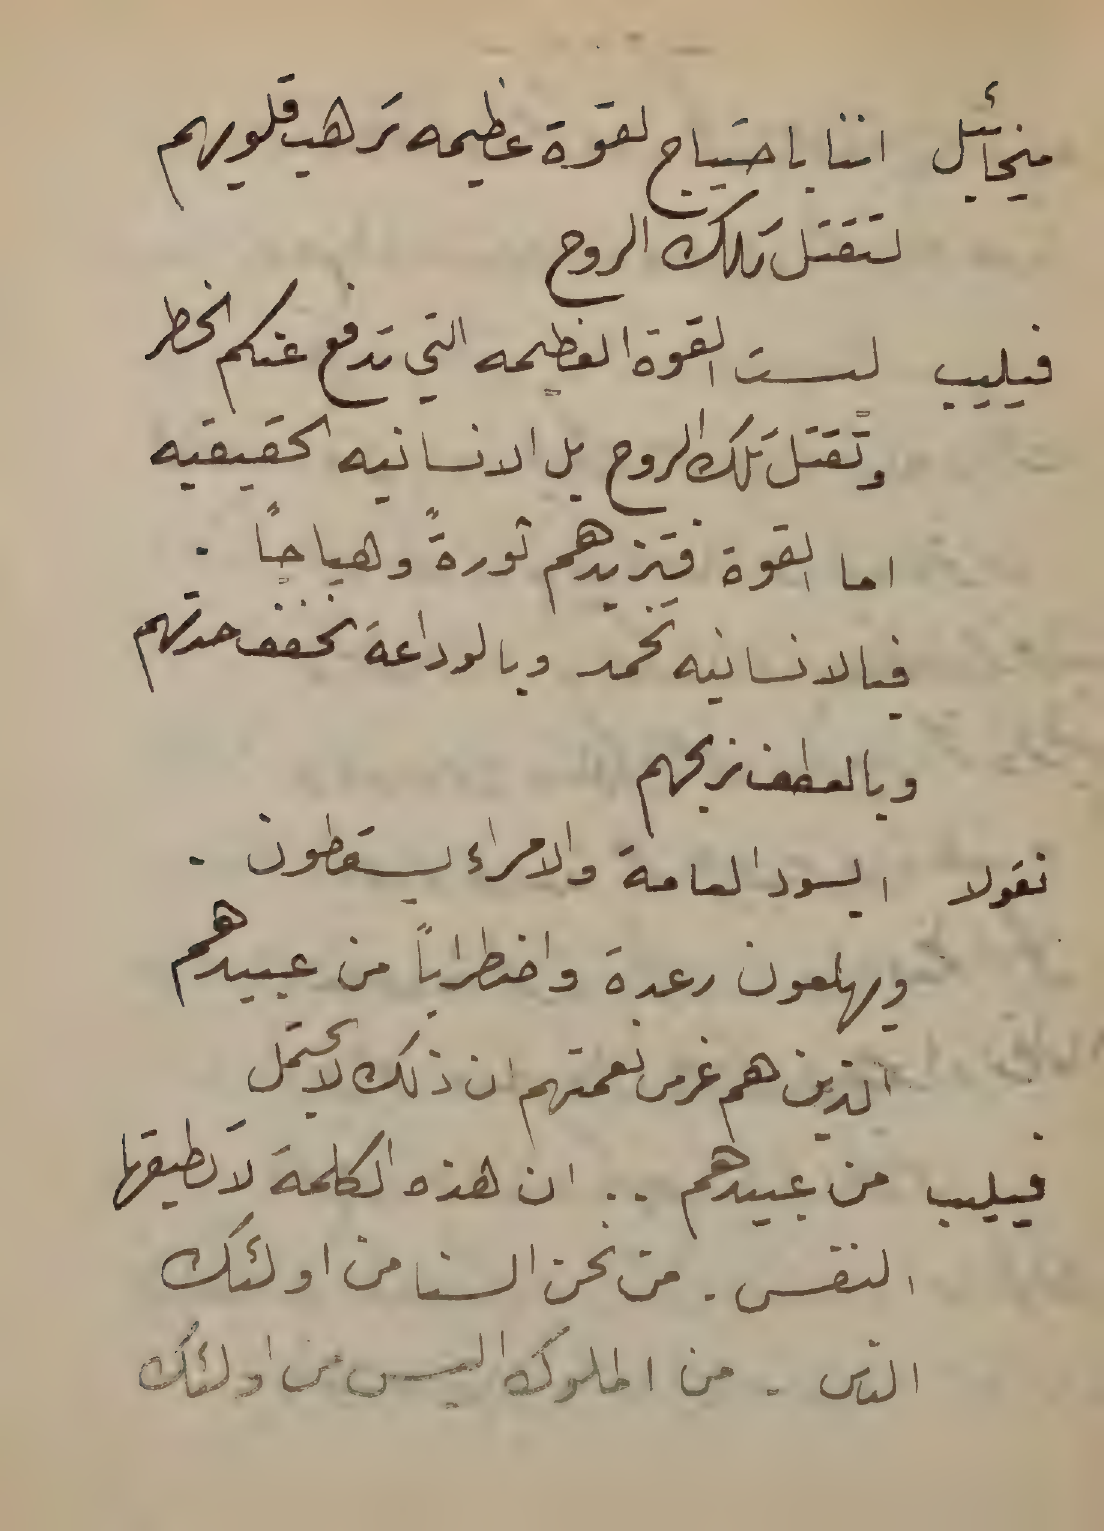 ميخائيل اننا باحتياج لقوة عظيمه ترهب قلوبهم
لتقتل تلك الروح
فيليب ليست القوة العظيمه التي تدفع عنكم الخطر
وتقتل تلك الروح بل الانسانيه الحقيقيه
اما القوة فتزيدهم ثورةً وهياجاً .
فبالانسانيه تخمد وبالوداعة نخفف حدتهم
وبالعطف نربحهم
نقولا ايسود العامة والامراء يسقطون .
ويهلعون رعدة واضطراباً من عبيدهم
الذين هم غرس نعمتهم ان ذلك لا يحتمل
فيليب من عبيدهم .. ان هذه الكلمة لا تطيقها
النفس . من نحن السنا من اولئك
الناس . من الملوك اليس من اولئك